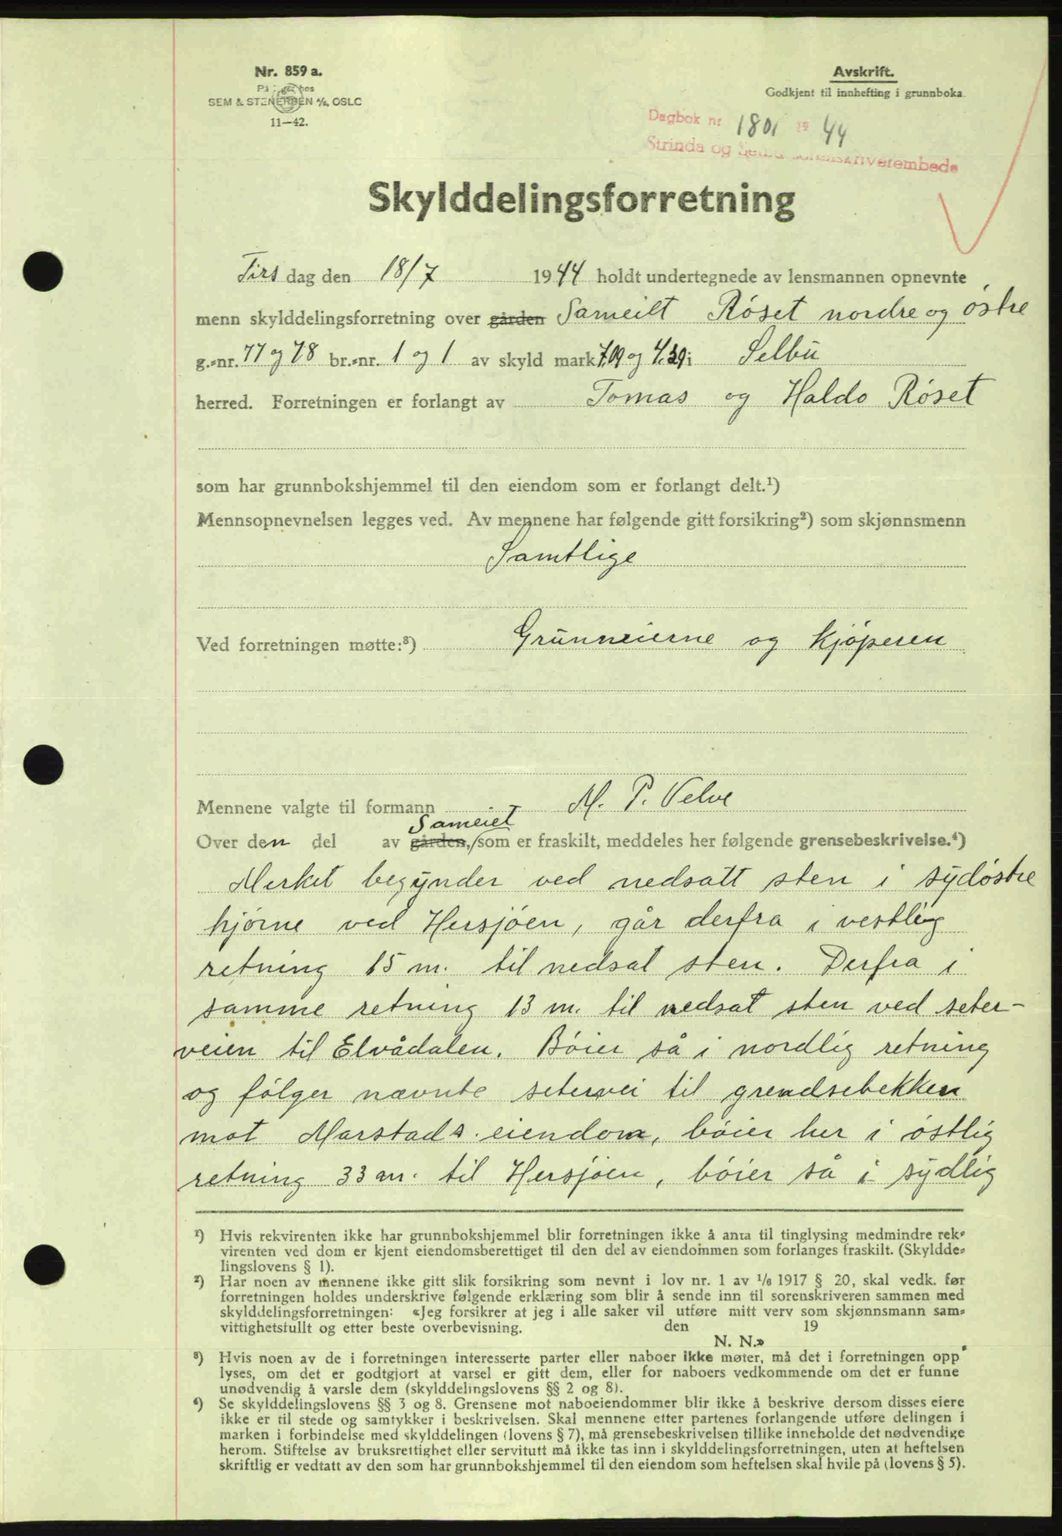 Nr. 859 a.
SEM & STENERSEN A/S, OSLO
11—42.
Avskrift.
Godkjent til innhefting i grunnboka.
Dagbok nr 1801 19 44
Strinda og Selbu sorenskriverembede
Skylddelingsforretning
Tirs dag den 18/7 1944 holdt undertegnede av lensmannen opnevnte
menn skylddelingsforretning over gården Sameilt Røset nordre og østre
g.-nr. 77 og 78 br.-nr. 1 og 1 av skyld mark 7.09 og 4.39 i Selbu
herred. Forretningen er forlangt av Tomas og Haldo Røset
som har grunnbokshjemmel til den eiendom som er forlangt delt.¹)
Mennsopnevnelsen legges ved. Av mennene har følgende gitt forsikring²) som skjønnsmenn
Samtlige
Ved forretningen møtte:³) Grunneierne og kjøperen
Mennene valgte til formann M. P. Velve
Sameiet
Over den del av gården, som er fraskilt, meddeles her følgende grensebeskrivelse.⁴)
Merket begynder ved nedsatt sten i sydøstre
hjørne ved Hersjøen, går derfra i vestlig
retning 15 m. til nedsat sten. Derfra i
samme retning 13 m. til nedsat sten ved seter-
veien til Elvådalen. Bøier så i nordlig retning
og følger nævnte setervei til grendsebekken
mot Marstads eiendom, bøier her i østlig
retning 33 m. til Hersjøen, bøier så i sydlig
¹) Hvis rekvirenten ikke har grunnbokshjemmel blir forretningen ikke å anta til tinglysing medmindre rek-
virenten ved dom er kjent eiendomsberettiget til den del av eiendommen som forlanges fraskilt. (Skyldde-
lingslovens § 1).
²) Har noen av mennene ikke gitt slik forsikring som nevnt i lov nr. 1 av 1/6 1917 § 20, skal vedk. før
forretningen holdes underskrive følgende erklæring som blir å sende inn til sorenskriveren sammen med
skylddelingsforretningen: «Jeg forsikrer at jeg i alle saker vil utføre mitt verv som skjønnsmann sam-
vittighetsfullt og etter beste overbevisning. den 19
N. N.»
³) Hvis noen av de i forretningen interesserte parter eller naboer ikke møter, må det i forretningen opp
lyses, om det er godtgjort at varsel er gitt dem, eller for naboers vedkommende om det er funne
unødvendig å varsle dem (skylddelingslovens §§ 2 og 8).
⁴) Se skylddelingslovens §§ 3 og 8. Grensene mot naboeiendommer blir ikke å beskrive dersom disses eiere
ikke er til stede og samtykker i beskrivelsen. Skal mennene etter partenes forlangende utføre delingen i
marken i forbindelse med skylddelingen (lovens § 7), må grensebeskrivelsen tillike inneholde det nødvendige
herom. Stiftelse av bruksrettighet eller servitutt må ikke tas inn i skylddelingsforretningen, uten at heftelsen
skriftlig er vedtatt av den som har grunnbokshjemmel til den eiendom som heftelsen skal hvile på (lovens § 5).